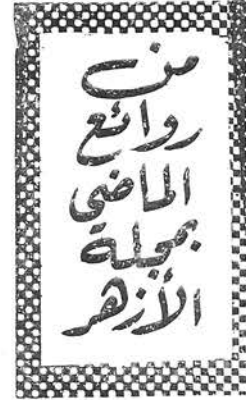 من
روائع
الماضى
بمجلة
الأزهر